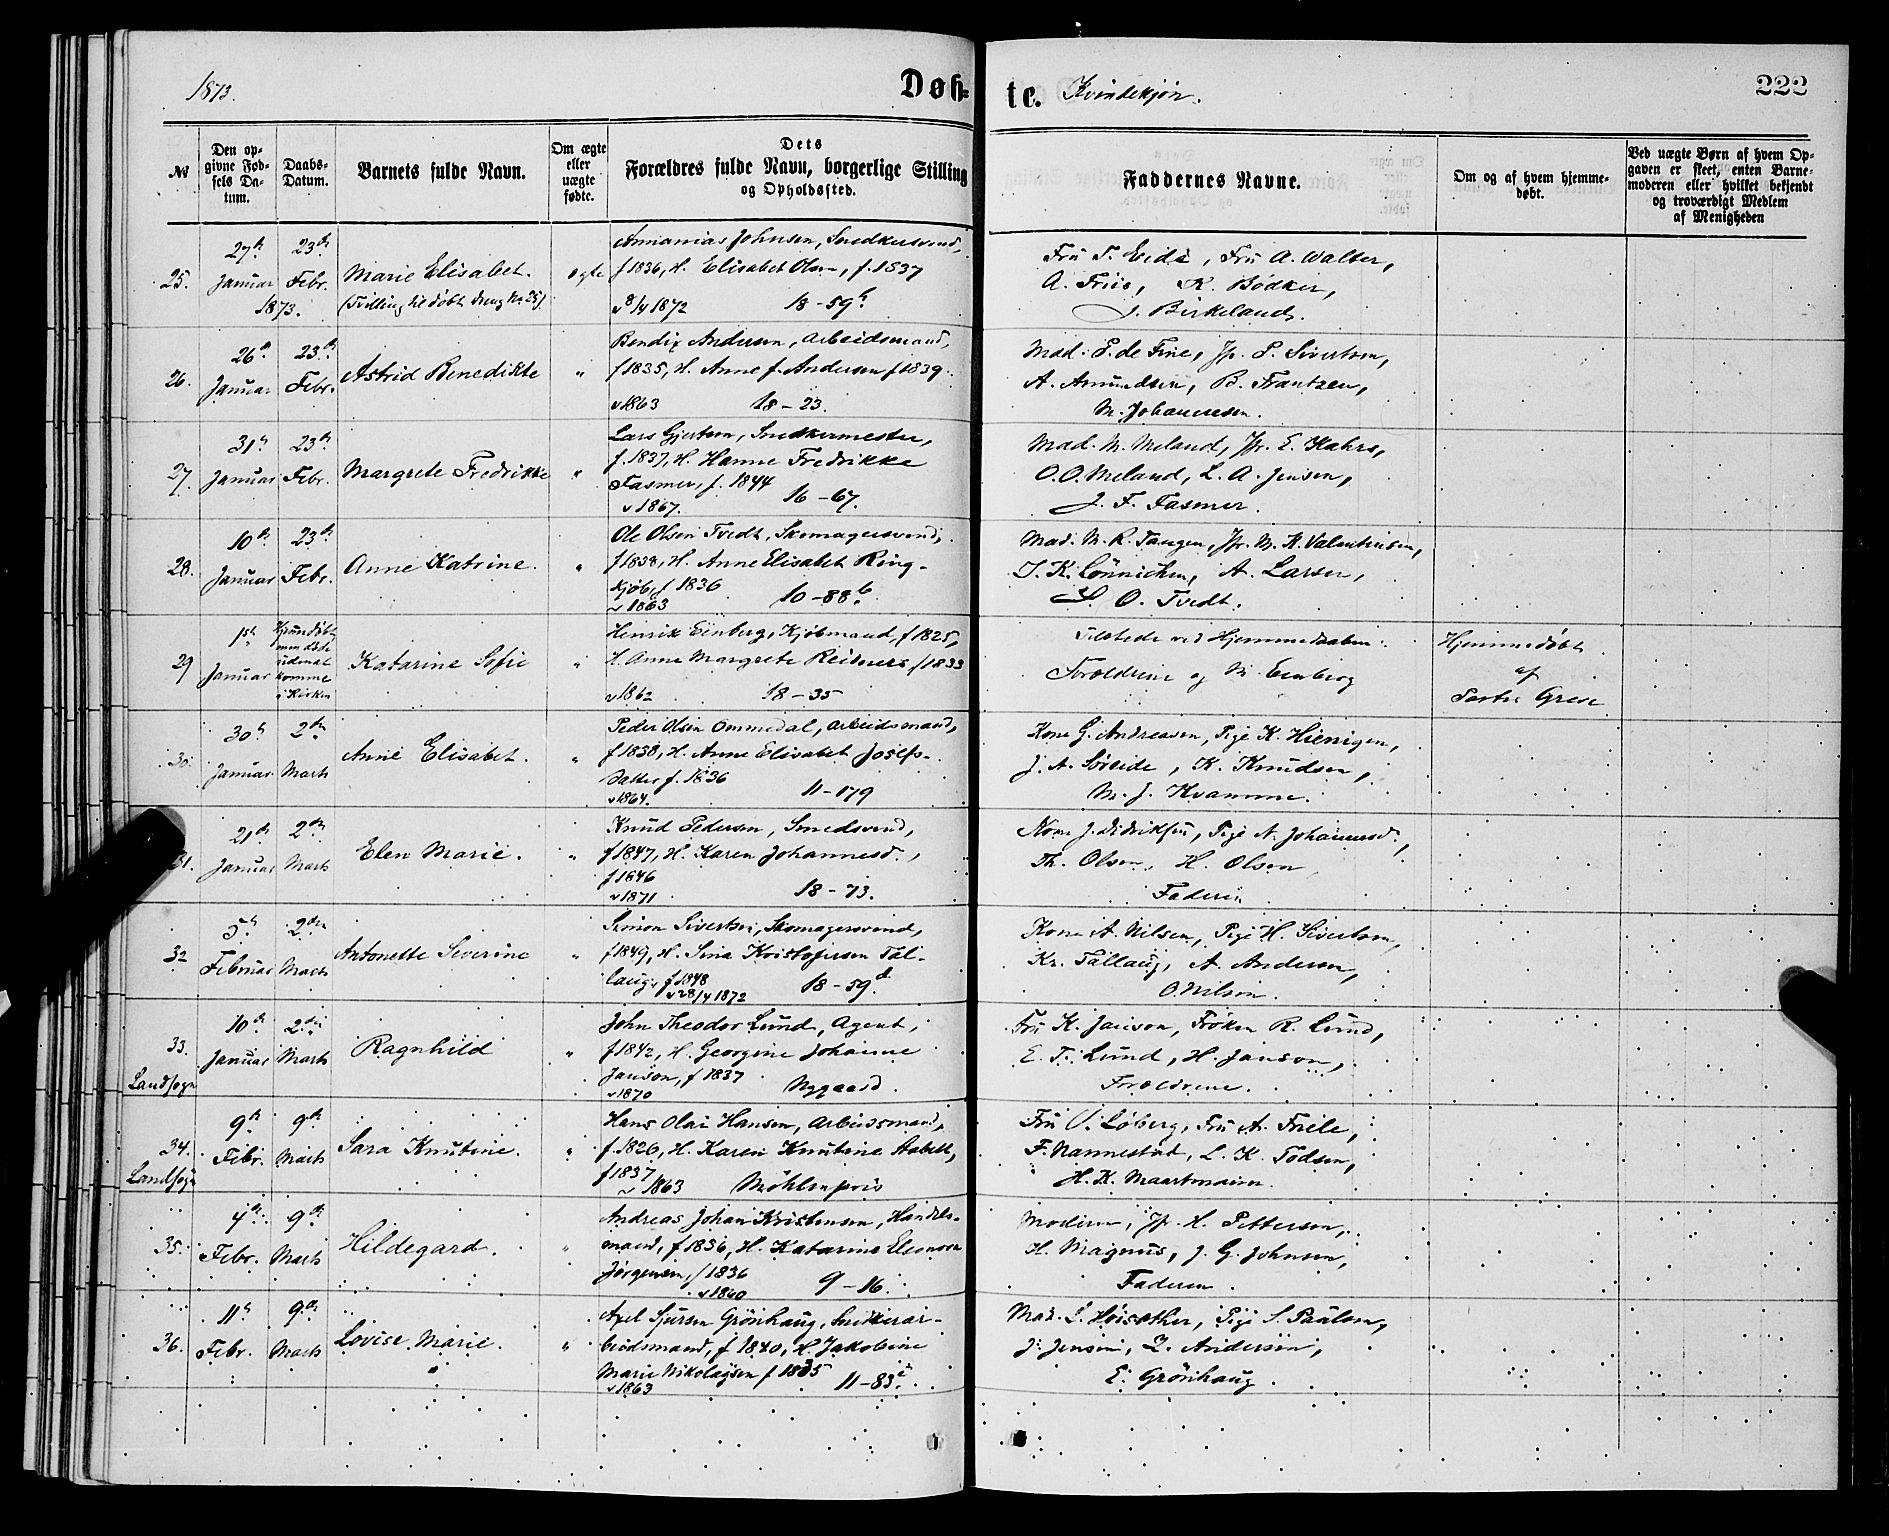 1873.
Døb-
te. Kvindekjøn.
222
№
Den op-
givne Fød-
sels Da-
tum.
Daabs-
Datum.
Barnets fulde Navn.
Om ægte
eller
uægte
fødte.
Dets
Forældres fulde Navn, borgerlige Stilling
og Opholdssted.
Faddernes Navne.
Om og af hvem hjemme-
døbt.
Ved uægte Børn af hvem Op-
gaven er skeet, enten Barne-
moderen eller hvilket bekjendt
og troværdigt Medlem
af Menigheden
25.
27de
Januar
1873.
23de
Febr.
Marie Elisabet.
(Tvilling til døbt dreng No 25)
ægte
Annanias Johnsen, Snedkersvend,
f 1836, H. Elisabet Olsen, f. 1837
v 8/4 1872 18-59b
Fru T. Eide, Fru A. Walter,
A. Friis, K. Bødker,
J. Birkeland.
26.
26de
Januar
23de
Febr.
Astrid Benedikte
"
Bendix Andersen, Arbeidsmand,
f 1835, H. Anne f. Andersen f 1839
v 1863 18-23.
Mad. E. de Fine, Jfr. S. Sivertsen,
A. Amundsen, B. Frantzen,
M. Johannesen.
27.
31te
Januar
23de
Febr.
Margrete Fredrikke
"
Lars Gjertsen, Snedkermester,
f. 1837, H. Hanne Fredrikke
Fasmer, f. 1844
v 1867. 16-67.
Mad. M. Meland, Jfr. E. Kahrs,
O. O. Meland, L. A. Jensen,
J. F. Fasmer.
28.
10de
Januar
23de
Febr.
Anne Katrine.
"
Ole Olsen Tvedt, Skomagersvend,
f 1838, H. Anne Elisabet Ring-
kjøb, f 1836
v 1863 10-88b
Mad. M. R. Tangen, Jfr. M. K. Valentinsen,
J. K. Lönnichen, A. Larsen,
S. O. Tvedt.
29
1ste
Januar
Hjemmedøbt
men døde
uden at
komme
i Kirken
Katarine Sofie
"
Henrik Eenberg, Kjøbmand, f 1825,
H. Anne Margrete Reimers f 1833
v 1862 18-35
Tilstede ved Hjemmedaaben:
Foreldrene og M. Eenberg
Hjemmedøbt
af
Pastor Greve
30.
30te
Januar
2den
Marts
Anne Elisabet.
"
Peder Olsen Ommedal, Arbeidsmand,
f 1838, H. Anne Elisabet Josefs-
datter f. 1836
v 1864. 11-179
Kone G. Andreasen, Pige K. Hienigen,
J. A. Søreide, K. Knudsen,
M. J. Kvamme.
31.
21de
Januar
2den
Marts
Elen Marie.
"
Knud Pedersen, Smedsvend,
f 1847, H. Karen Johannesd.,
f 1846
v 1871 18-73.
Kone J. Didriksen, Pige A. Johannesd.,
Th. Olsen, H. Olsen
Faderen
32
5te
Februar
2den
Marts
Antonette Severine
"
Simon Sivertsen, Skomagersvend,
f 1849, H. Sina Kristofersen Tal-
laug, f 1848
v 28/4 1872 18-59d.
Kone A. Nilsen, Pige H. Sivertsen,
Kr. Tallaug, A. Andersen,
O. Nilsen.
33.
Landsogn
10de
Januar
2den
Marts
Ragnhild
"
John Theodor Lund, Agent,
f 1842, H. Georgine Johanne
Janson, f 1837
v 1870 Nygaard.
Fru K. Janson, Frøken R. Lund,
E. T. Lund, H. Janson,
Foreldrene.
34.
Landsogn
9de
Febr.
9de
Marts
Sara Knutine.
"
Hans Olai Hansen, Arbeidsmand,
f. 1826, H. Karen Knutine Stabell,
f 1837
v 1863 Møhlenpris
Fru V. Løberg, Fru A. Friele,
F. Nannestad, L. K. Todsen,
H. K. Maartmann.
35.
4de
Febr.
9de
Marts
Hildegard.
"
Andreas Johan Kristensen, Handels-
mand, f 1836, H. Katarina Eleonora
Jørgensen, f 1836
v 1860 9-16.
Moderen, Jfr. H. Pettersen,
H. Magnus, J. G. Johnsen,
Faderen.
36.
11te
Febr.
9de
Marts
Lovise Marie.
"
Axel Sjursen Grönhaug, Snedkerar-
beidsmand, f 1840, H. Jakobine
Marie Nikolaysen f 1835
v 1863 11-83c
Mad. L. Høisæther, Pige S. Paulsen,
J. Jensen, L. Andersen,
E. Grönhaug.